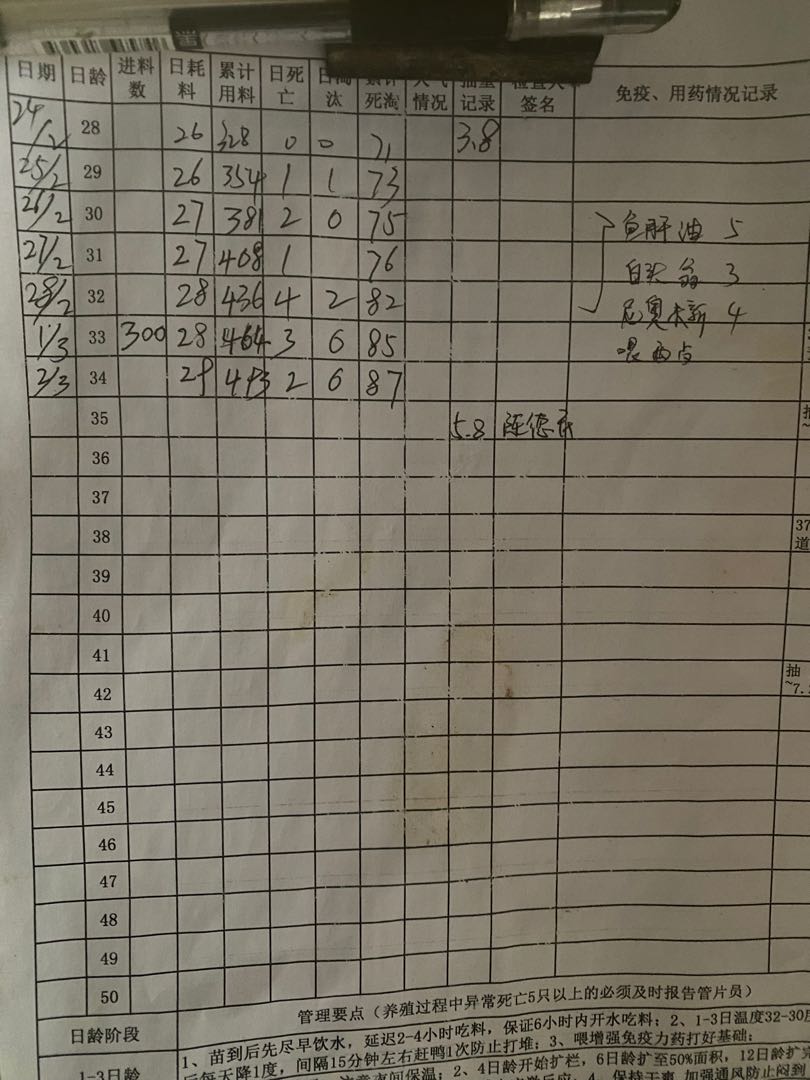 日期 日龄 进料数 日耗料 累计用料 日死亡 日淘汰 累计死淘 天气情况 抽重记录 检查人签名 免疫、用药情况记录
24/2 28 26 328 0 0 71 3.8
25/2 29 26 354 1 1 73
26/2 30 27 381 2 0 75 鱼肝油 5
27/2 31 27 408 1 76 白头翁 3
28/2 32 28 436 4 2 82 尼奥木新 4
1/3 33 300 28 464 3 0 85
2/3 34 29 493 2 0 87
35 5.8
36
37
38
39
40
41
42
43
44
45
46
47
48
49
50
管理要点（养殖过程中异常死亡5只以上的必须及时报告管片员）
日龄阶段
1、苗到后先尽早饮水，延迟2-4小时吃料，保证6小时内开水吃料；2、1-3日温度32-30度
1-3日龄
后每天降1度，间隔15分钟左右赶鸭1次防止打堆；3、喂增强免疫力药打好基础；
2、4日龄开始扩栏，6日龄扩至50%面积，12日龄扩完